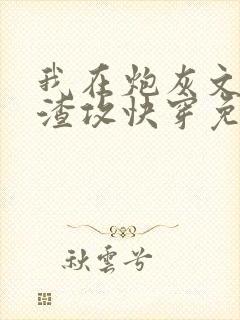 我在炮灰文
渣攻快穿免
秋雲兮